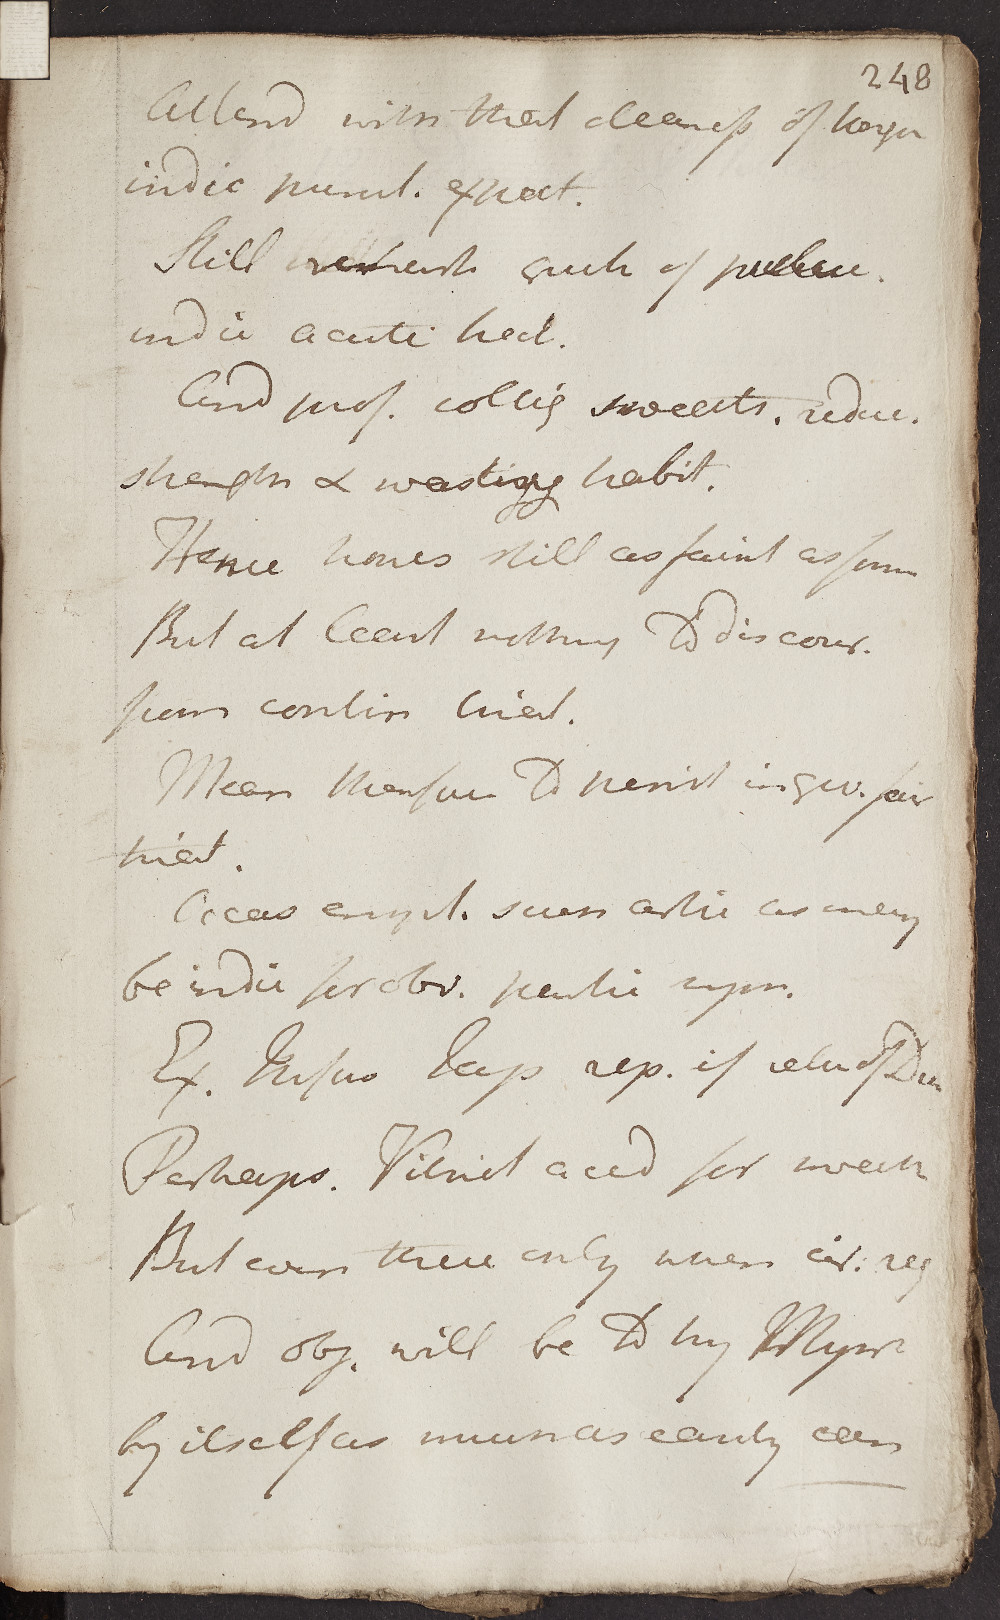 248
Attend with that clearness of tongue
indic purul. expect.
Still remark quick of pulse.
indic acute hect.
And prof. collig sweats. reduc.
strength & wasting habit.
Hence hopes still as faint as form
But at least nothing to discour.
from contin trial.
Mean therefore to persist in giv. fair
trial.
Occas empl. such artic as may
be indic for obv. partic symp.
Ex. Infus rep. if return of
Perhaps. Vitriol acid for sweats
But even these only when cir. req
And obj. will be to try Myrr
by itself as much as easily can